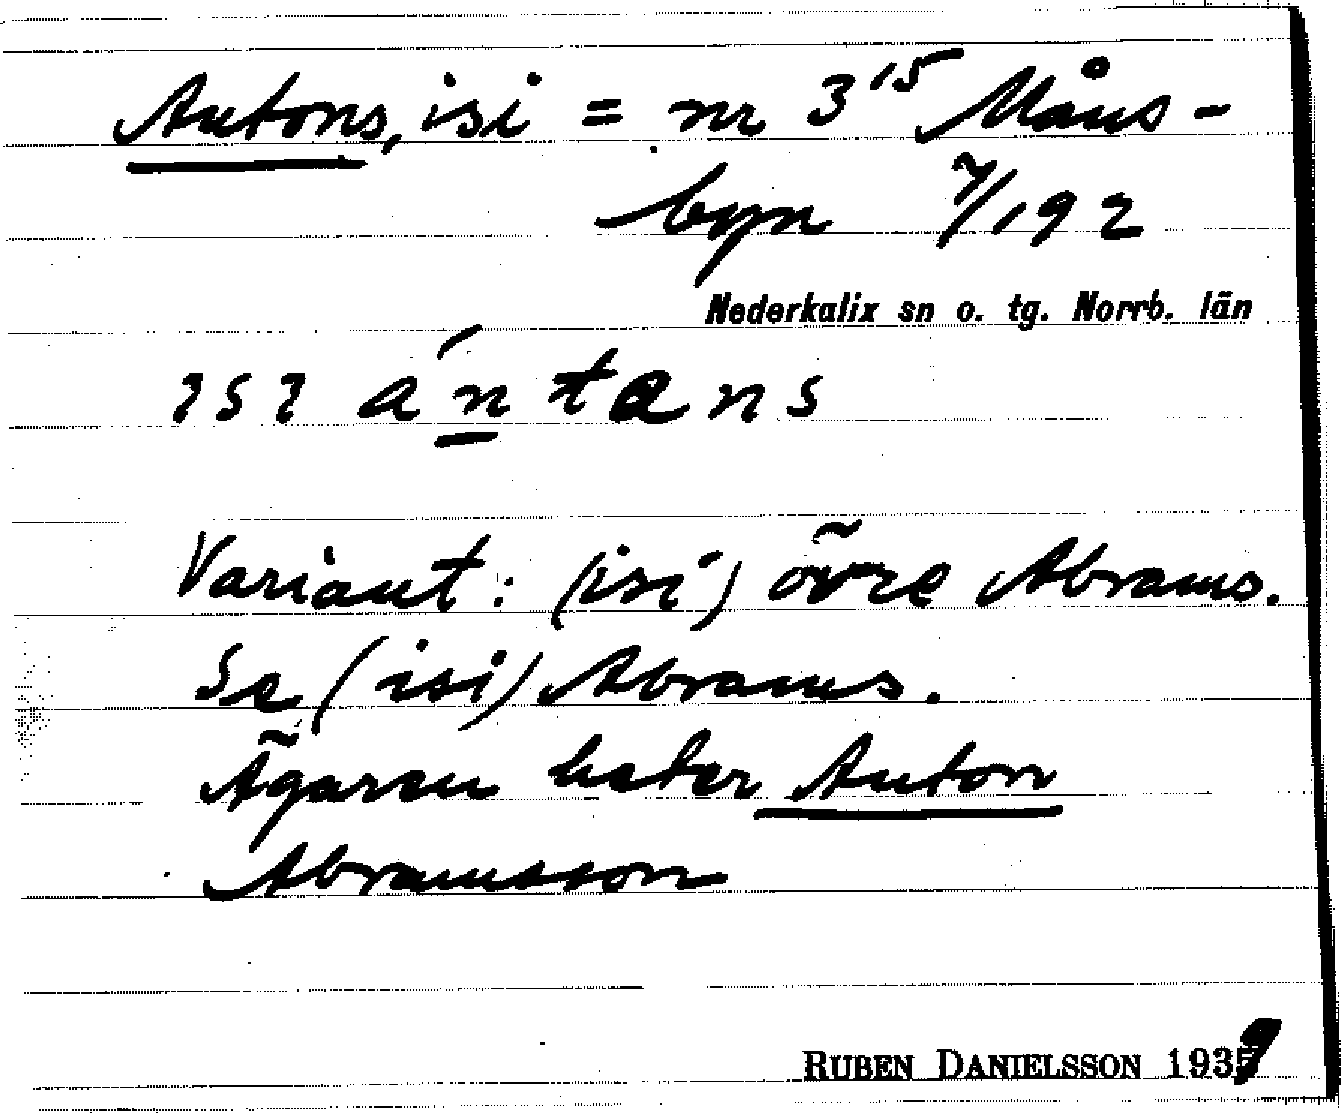 Antons, isi = nr 3¹⁵ Måns-
byn 7/192
Nederkalix sn o. tg. Norrb. län
ısı ántans
Variant: (isi) övre Abrams.
Se (isi) Abrams.
Ägaren heter Anton
Abramsson
RUBEN DANIELSSON 1939